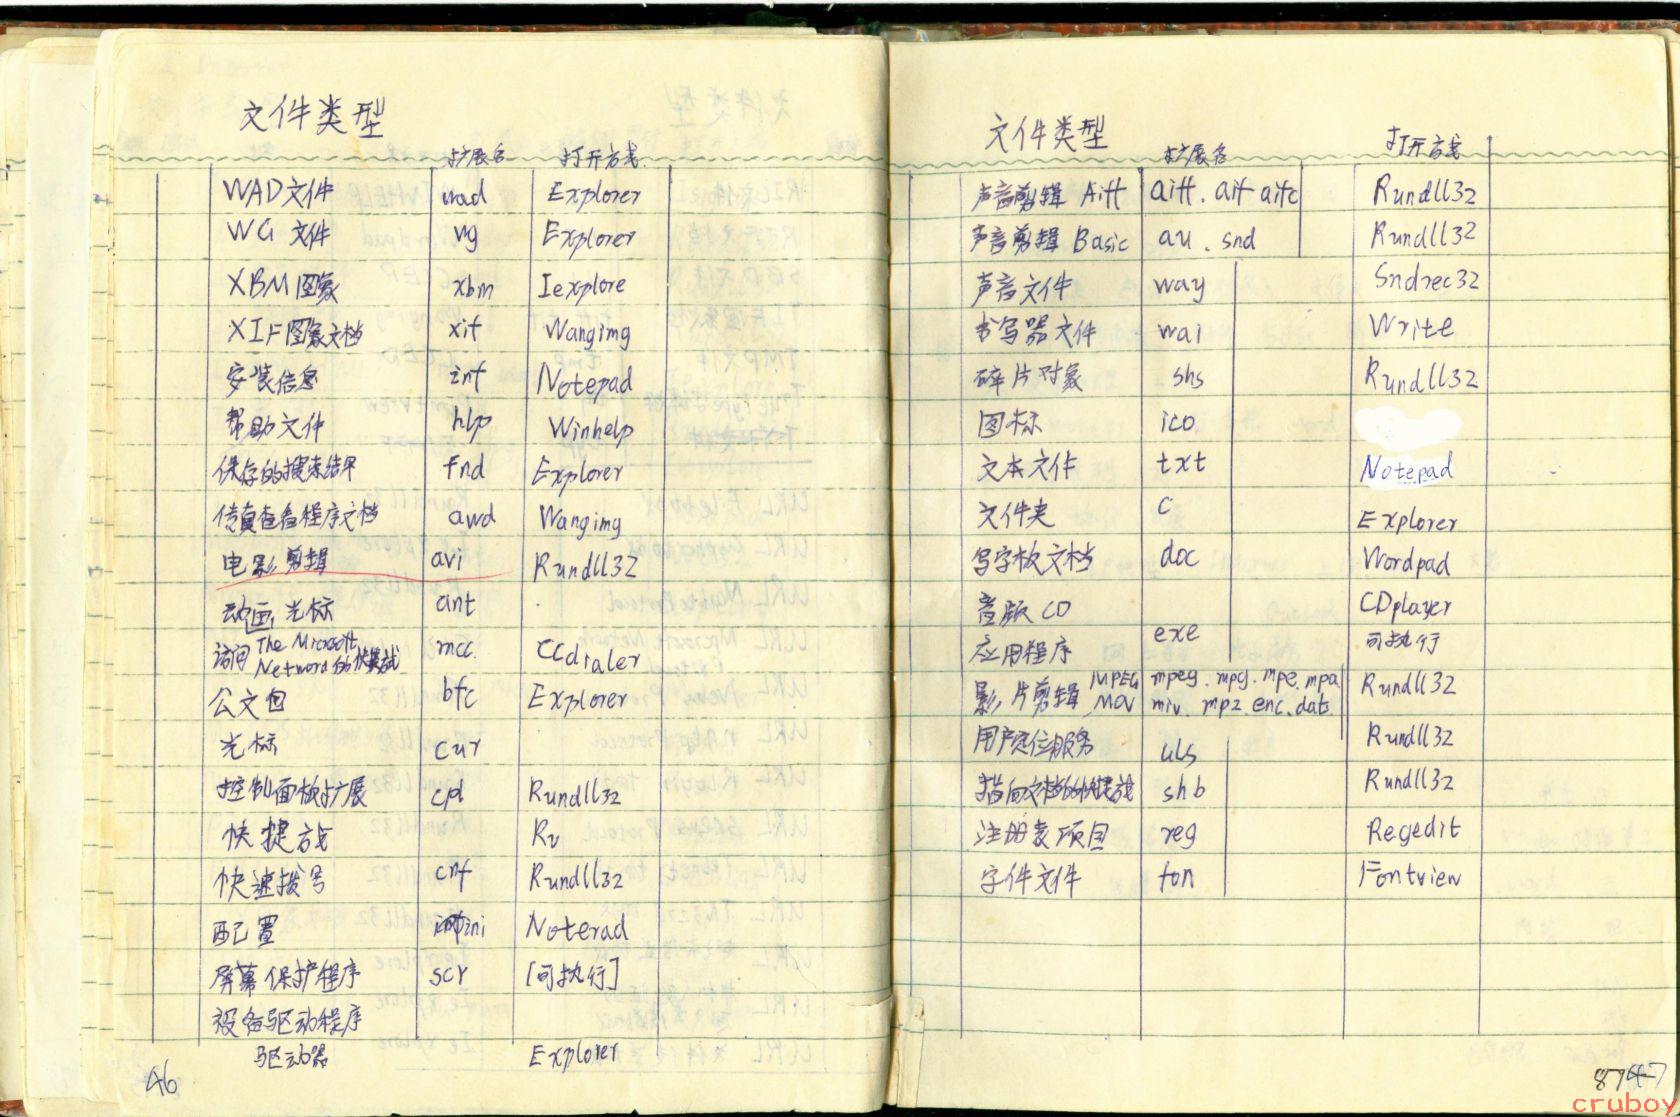 文件类型
扩展名 打开方式
WAD文件 wad Explorer
WG 文件 wg Explorer
XBM图象 xbm Iexplore
XIF图象文档 xif Wangimg
安装信息 inf Notepad
帮助文件 hlp Winhelp
保存的搜索结果 fnd Explorer
传真查看程序文档 awd Wangimg
电影剪辑 avi Rundll32
动画光标 ant
访问 The Microsoft Netword的快捷方式 mcc. CCdialer
公文包 bfc Explorer
光标 cur
控制面板扩展 cpl Rundll32
快捷方式 Rv
快速拨号 cnf Rundll32
配置 ini Noterad
屏幕保护程序 scr [可执行]
设备驱动程序
驱动器 Explorer
46
文件类型
扩展名 打开方式
声音剪辑 Aiff aiff. aif aifc Rundll32
声音剪辑 Basic au . snd Rundll32
声音文件 way Sndrec32
书写器文件 wai Write
碎片对象 shs Rundll32
图标 ico
文本文件 txt Notepad
文件夹 c Explorer
写字板文档 doc Wordpad
音版 CD CDplayer
应用程序 exe 可执行
影片剪辑 MPEG mpeg. mpg. mpe. mpa Rundll32
MOV miv. mp2. enc. dat.
用户定位服务 uls Rundll32
指向文档的快捷方式 shb Rundll32
注册表项目 reg Regedit
字件文件 fon Fontview
8747
cruboy